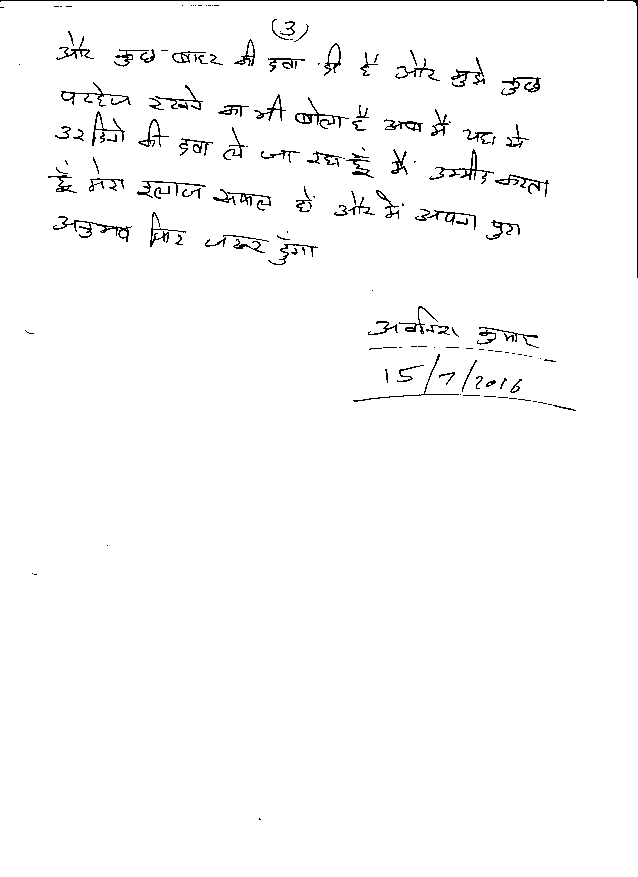 (3)
और कुछ बाहर की दवा दी है और मुझे कुछ
परहेज रखने का भी बोला है अब मैं यहा से
32 दिनो की दवा ले जा रहा हूँ मैं उम्मीद करता
हूँ मेरा इलाज सफल हो और मैं अपना पुरा
अनुभव फिर जरूर दुँगा
अवनिश कुमार
15/7/2016